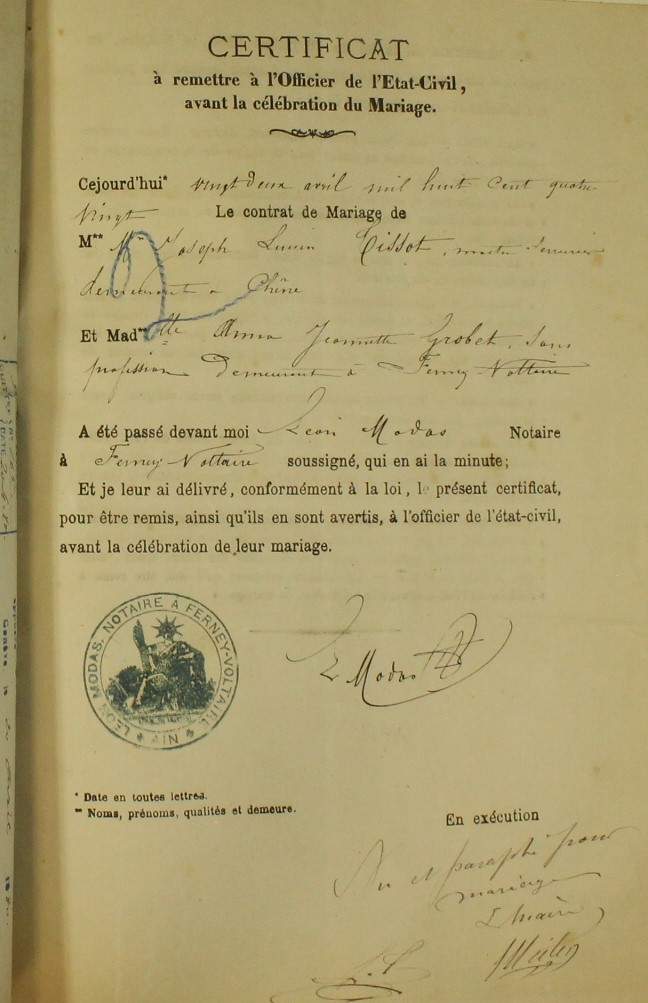 CERTIFICAT
à remettre à l'Officier de l'Etat-Civil,
avant la célébration du Mariage.
Cejourd'hui* vingt deux avril mil huit cent quatre
vingt Le contrat de Mariage de
M** Mr Joseph Lucien Tissot, maitre serrurier
demeurant à Chêne
Et Mad**elle Anna Jeannette Grobet, sans
profession demeurant à Ferney Voltaire
A été passé devant moi Léon Modas Notaire
à Ferney Voltaire soussigné, qui en ai la minute;
Et je leur ai délivré, conformément à la loi, le présent certificat,
pour être remis, ainsi qu'ils en sont avertis, à l'officier de l'état-civil,
avant la célébration de leur mariage.
LÉON MODAS, NOTAIRE A FERNEY-VOLTAIRE AIN
L Modas
* Date en toutes lettres.
** Noms, prénoms, qualités et demeure.
En exécution
Vu et paraphé pour
mariage
L Maire